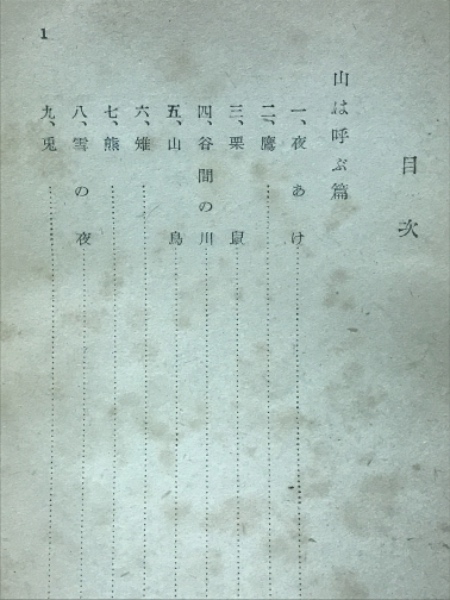 目次
山は呼ぶ篇
一、夜あけ
二、鷹
三、栗鼠
四、谷間の川
五、山鳥
六、雉
七、熊
八、雪の夜
九、兎
1